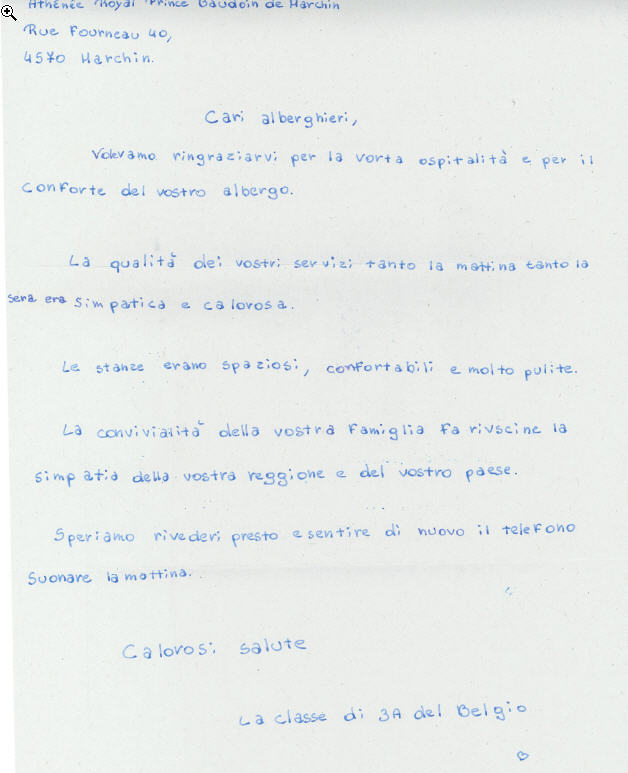 Athénée Royal Prince Baudoin de Marchin
Rue Fourneau 40,
4570 Marchin.
Cari alberghieri,
Volevamo ringraziarvi per la vorta ospitalità e per il
conforte del vostro albergo.
La qualità dei vostri servizi tanto la mattina tanto la
sera era simpatica e calorosa.
Le stanze erano spaziosi, confortabili e molto pulite.
La convivialità della vostra famiglia fa riuscine la
simpatia della vostra reggione e del vostro paese.
Speriamo rivederi presto e sentire di nuovo il telefono
suonare la mattina.
Calorosi salute
La classe di 3A del Belgio